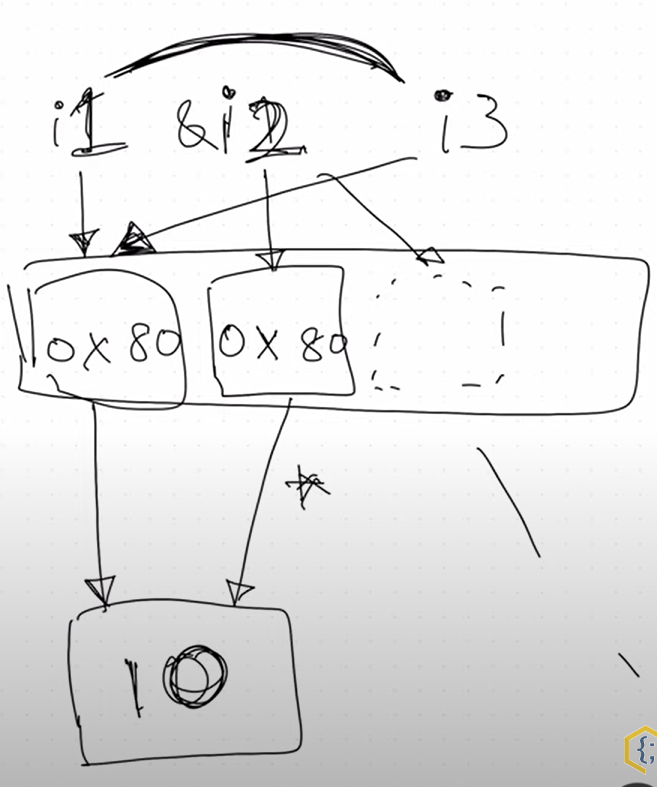 i1 &i2 i3
0x80 0x80
10
{;